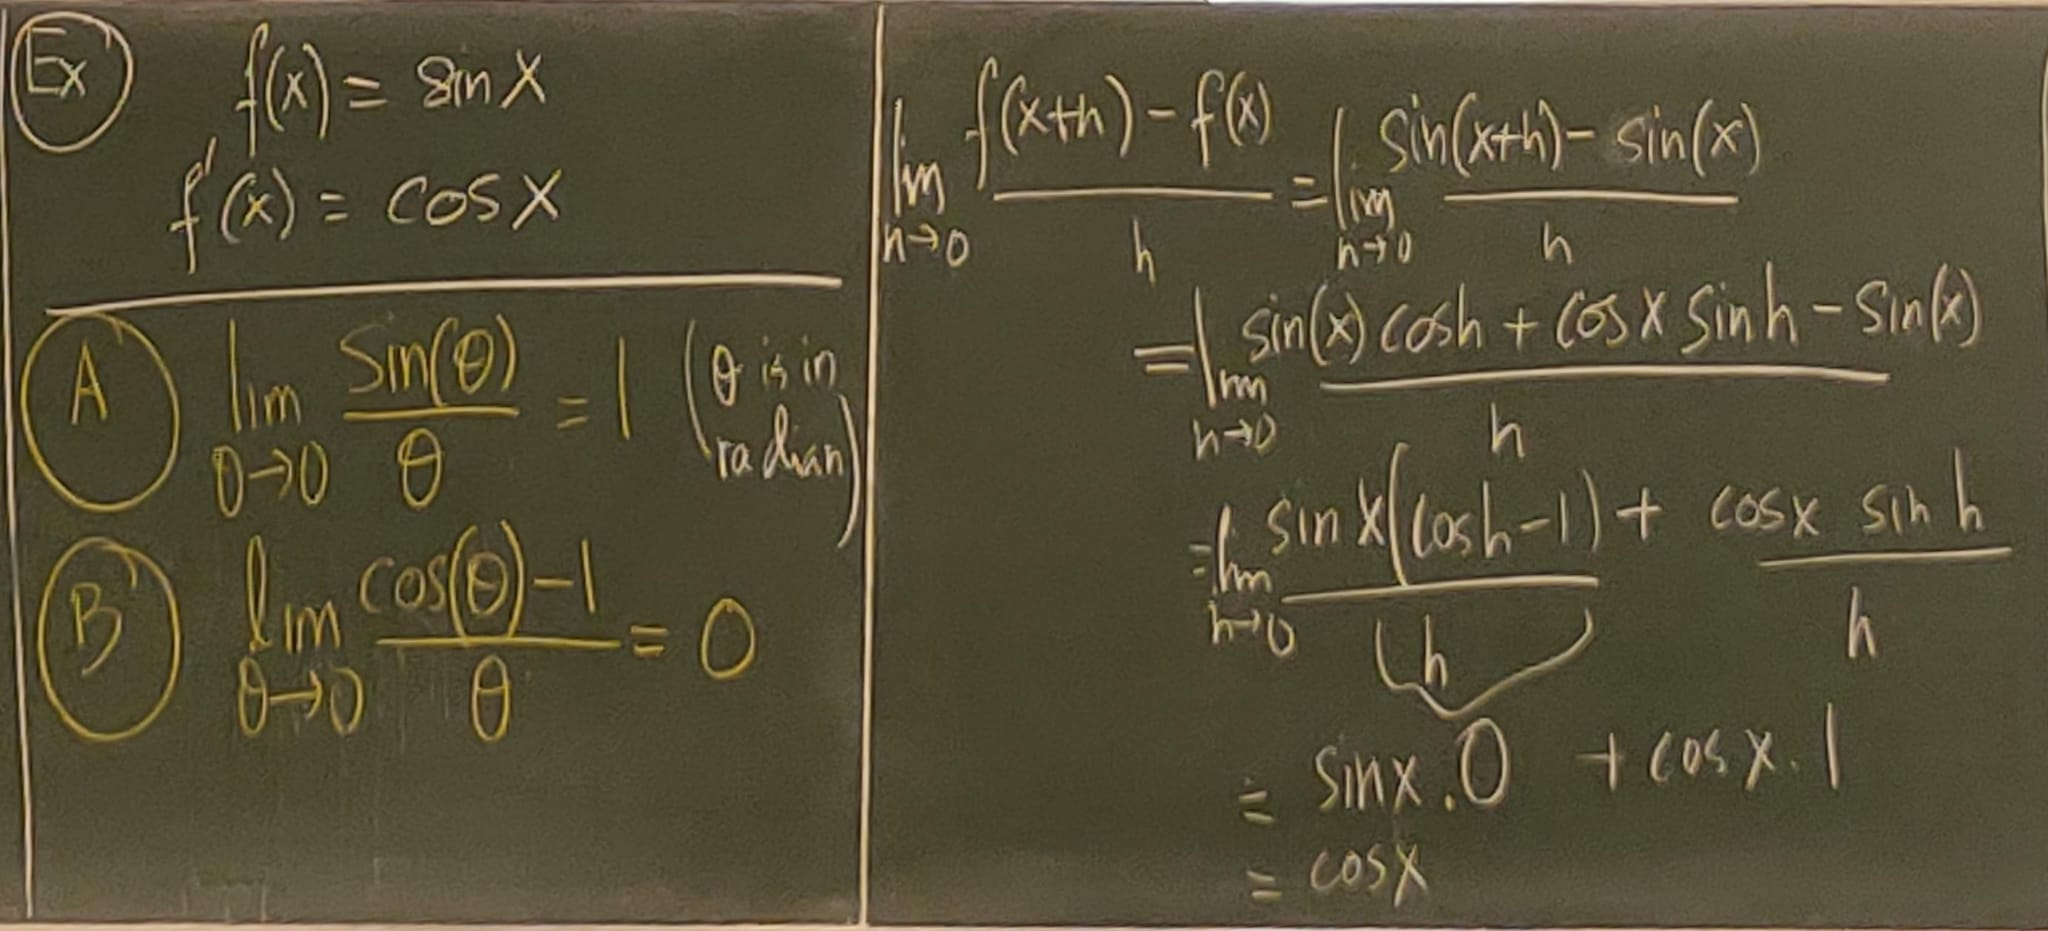 Ex f(x) = sin x
f'(x) = cos x
A lim θ→0 sin(θ)/θ = 1 (θ is in radian)
B lim θ→0 (cos(θ)-1)/θ = 0
lim h→0 (f(x+h) - f(x))/h = lim h→0 (sin(x+h) - sin(x))/h
= lim h→0 (sin(x) cosh + cos x sin h - sin(x))/h
= lim h→0 sin x(cosh-1)/h + cosx sin h/h
= sinx . 0 + cos x . 1
= cosx